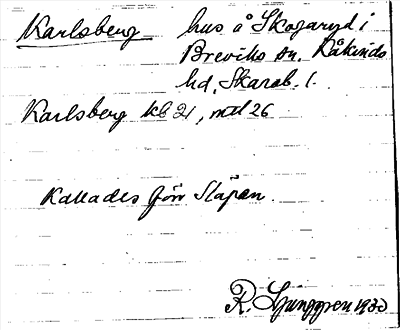 Karlsberg hus å Skogaryd i
Breviks sn. Kåkinds
hd, Skarab. l.
Karlsberg kb 21, mtl 26
Kallades förr Slapan.
R. Ljunggren 1930